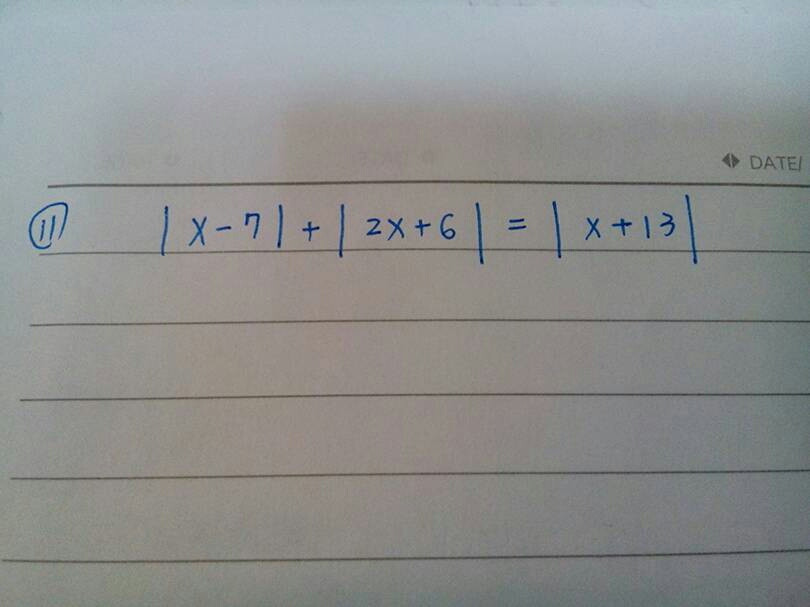 DATE/
(ii) |x-7| + |2x+6| = |x+13|